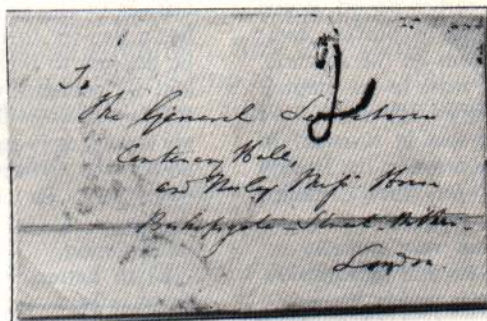 To
The General Secretaries
Centenary Hall,
and Wesley Miss. House
Bishopsgate Street Within
London.
2